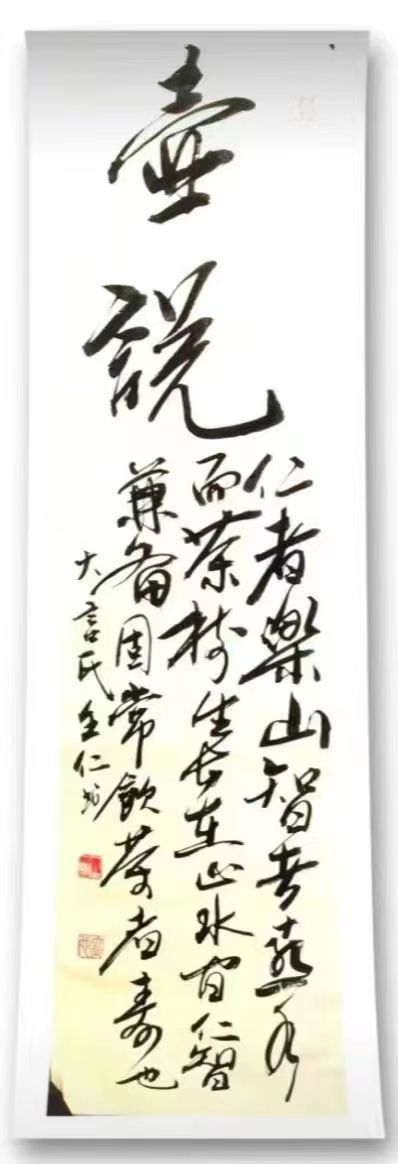 壺說
仁者樂山智者喜水
而茶樹生長在山水間仁智
兼备固常飲茶者壽也
大言氏